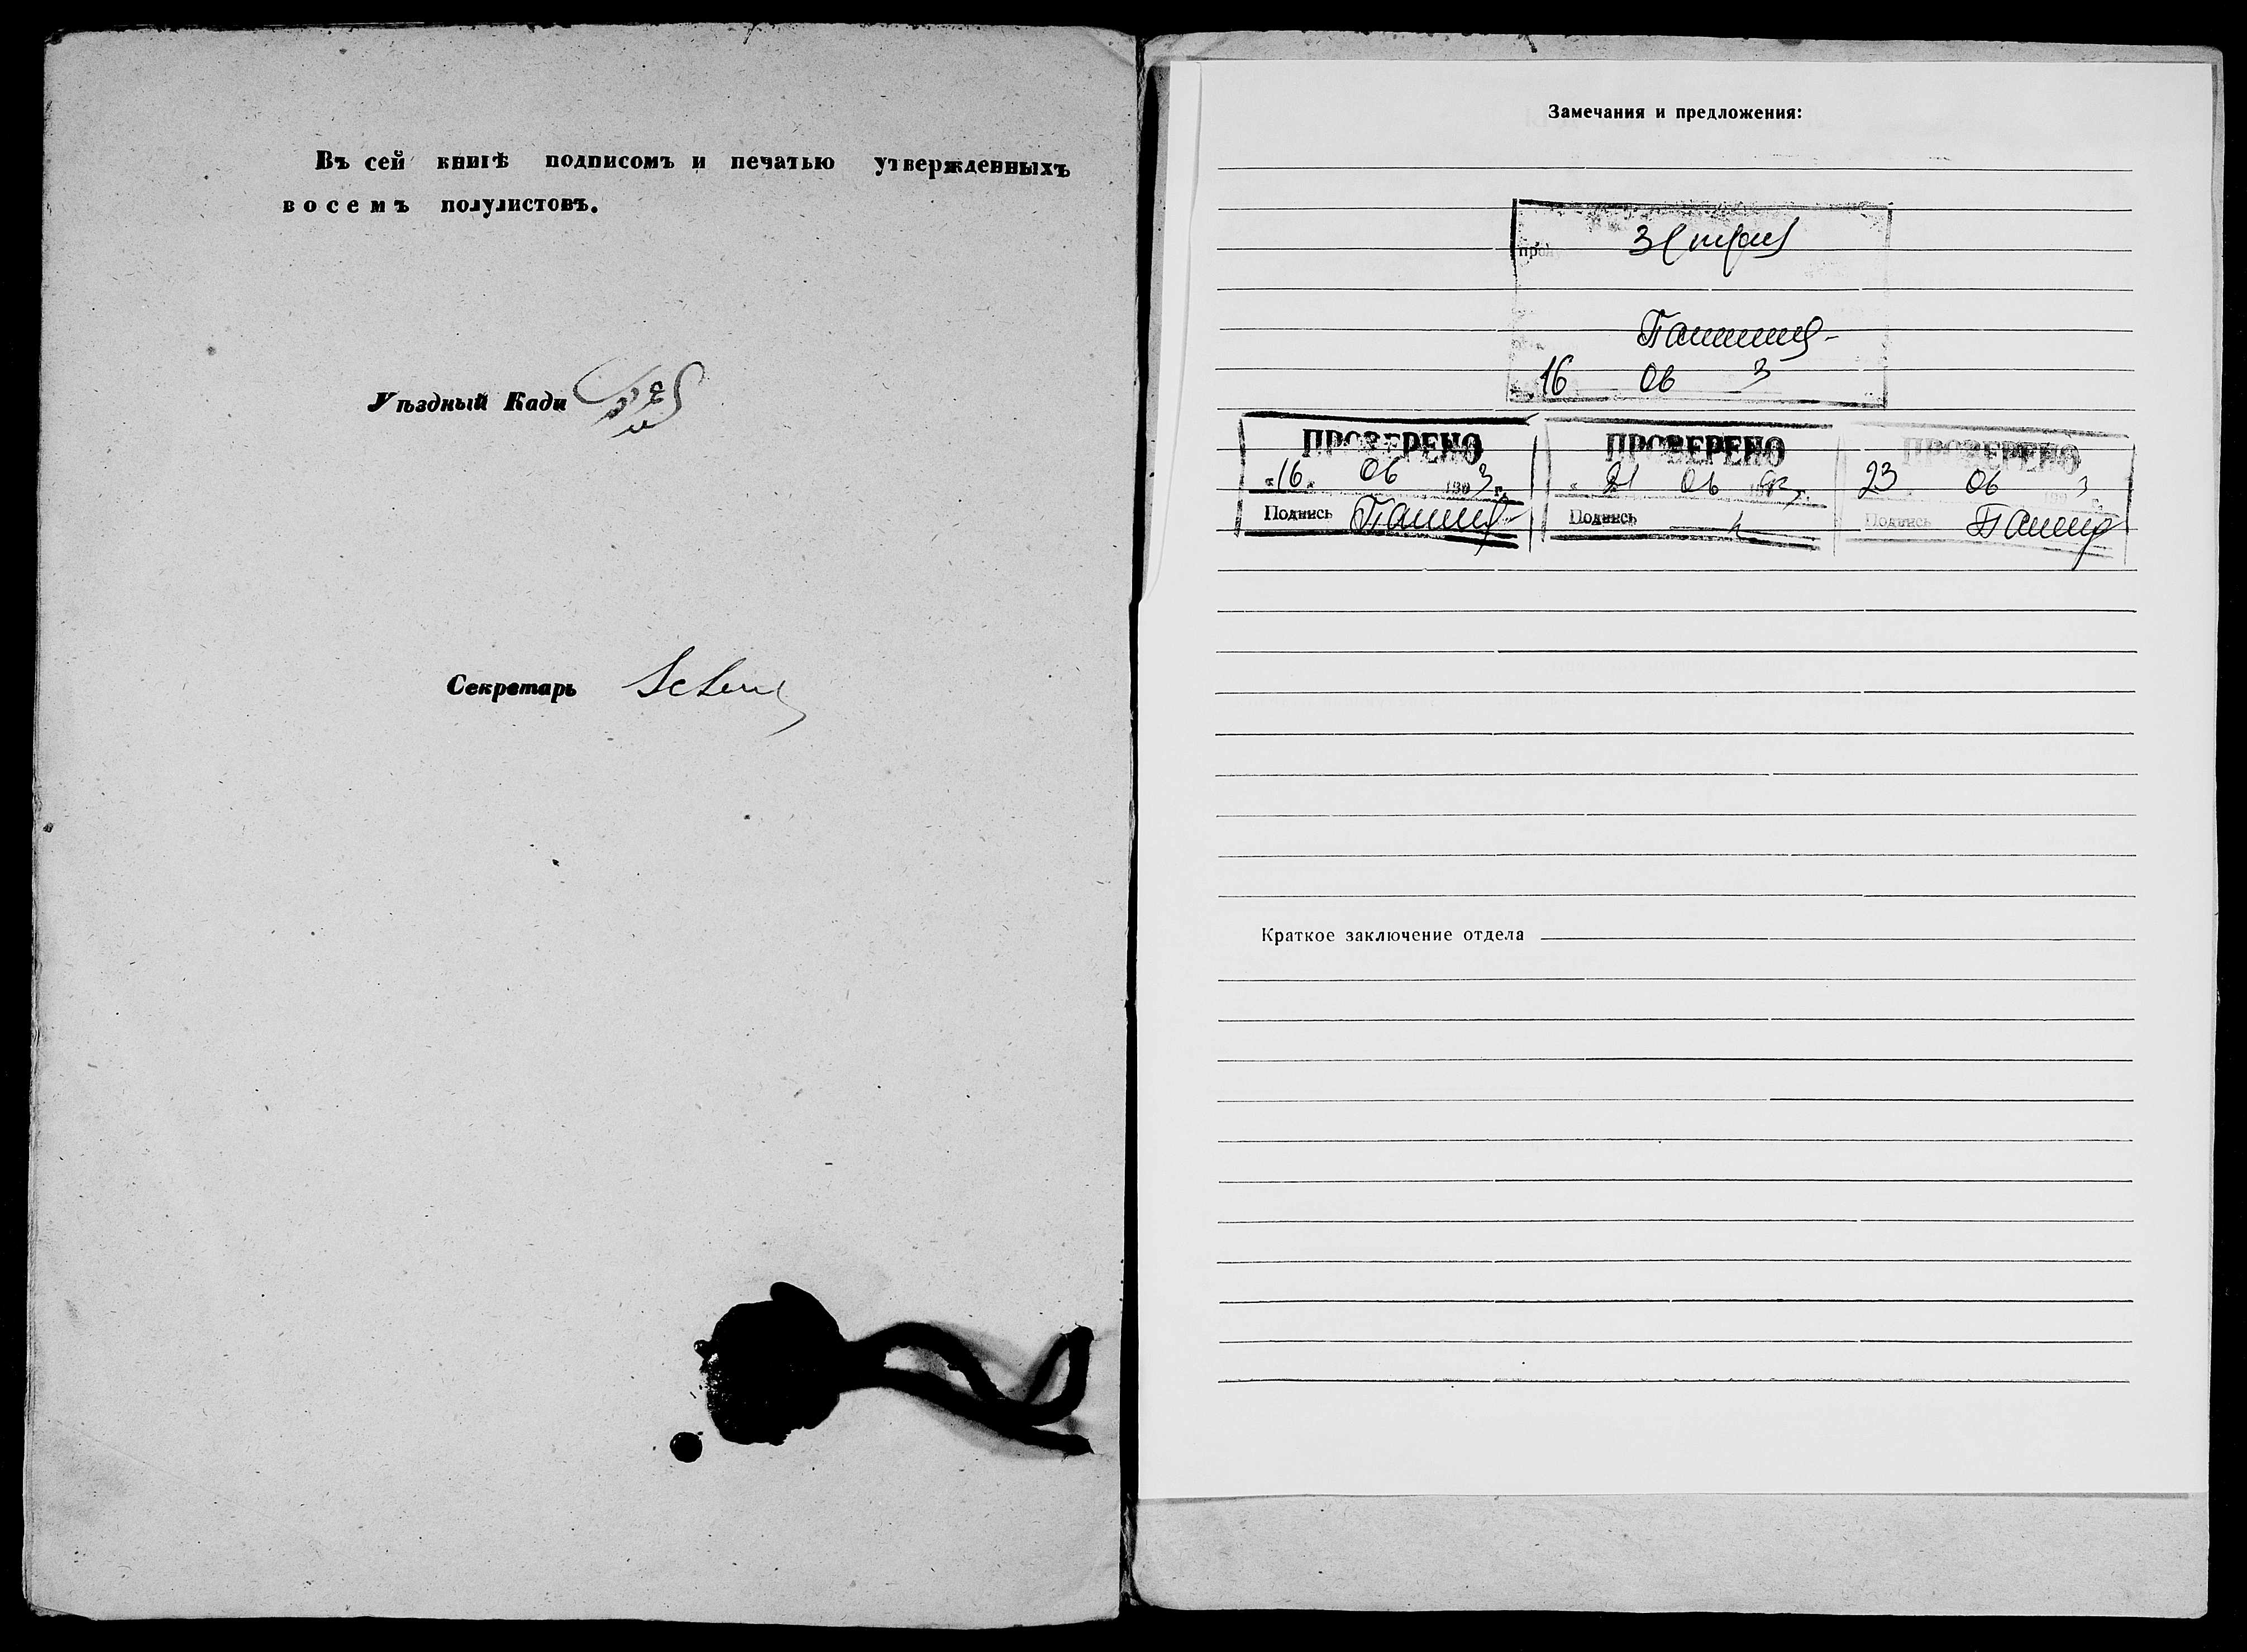 Въ сей книгѣ подписомъ и печатью утвержденныхъ
восемъ полулистовъ.
Уѣздный Кади
Секретарь
Замечания и предложения:
16 06 3
ПРОВЕРЕНО
„16„ 06 1993 г.
Подпись
ПРОВЕРЕНО
21 06 93 г.
Подпись
ПРОВЕРЕНО
23 06 3
Подпись
Краткое заключение отдела